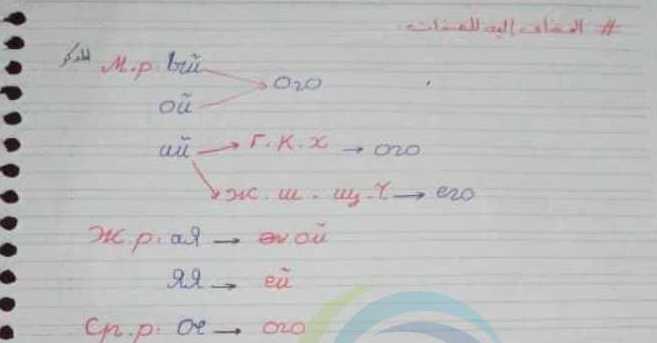 # المضاف إليه للصفات
للمذكر М.р. ый → ого
ой
ий → г. к. х → ого
→ ж. ш. щ. ч → его
Ж.р. ая → ой
яя → ей
Ср.р. ое → ого